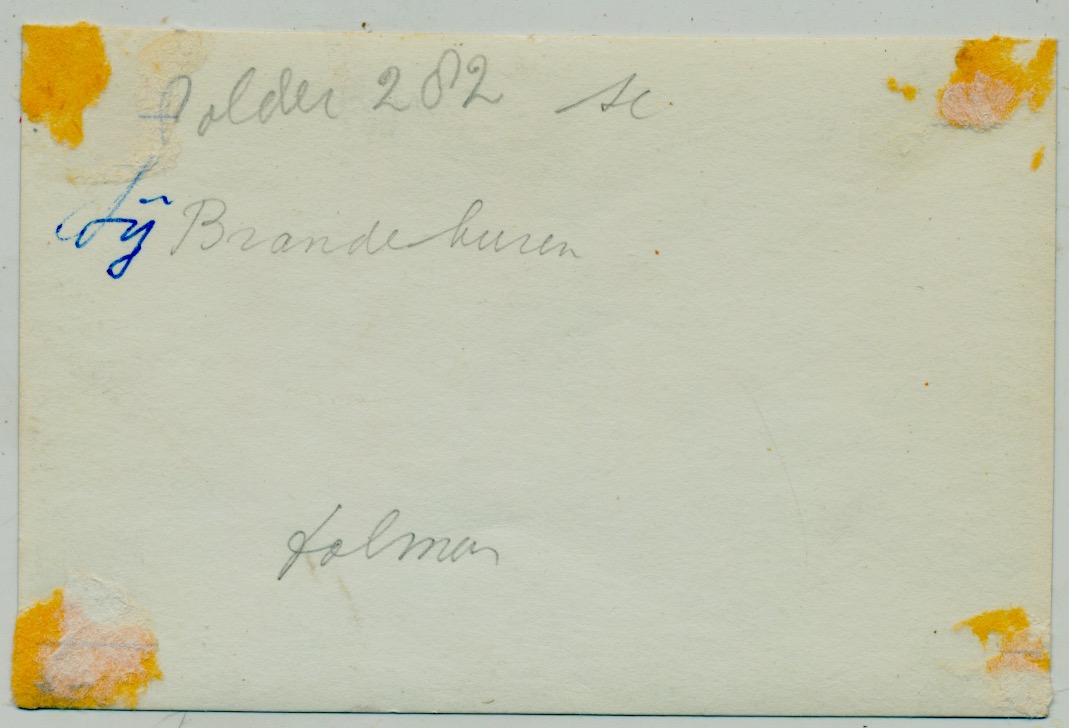 Polder 282 sc
bij Brandeburen
Kolman